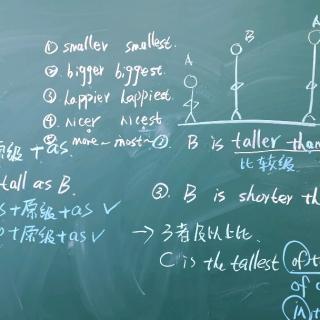 ① smaller smallest.
② bigger biggest.
③ happier happiest
④ nicer nicest
⑤ more~ most~
A
B
A
原级 + as.
tall as B.
s + 原级 + as √
+ 原级 + as √
②. B is taller than
比较级
③. B is shorter th
→ 3者及以上比.
C is the tallest of t
of a
in t